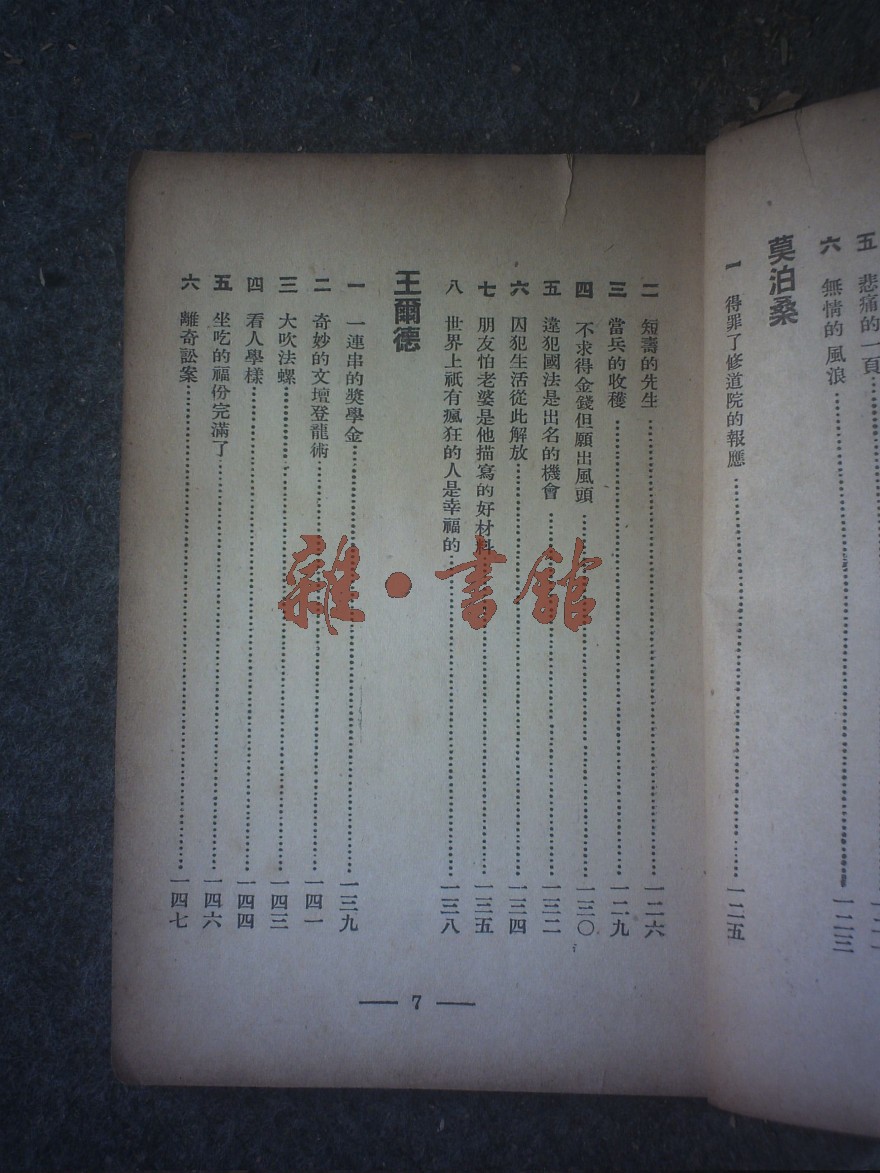 五 悲痛的一頁
六 無情的風浪 一二三
莫泊桑
一 得罪了修道院的報應 一二五
二 短壽的先生 一二六
三 當兵的收穫 一二九
四 不求得金錢但願出風頭 一三〇
五 違犯國法是出名的機會 一三二
六 囚犯生活從此解放 一三四
七 朋友怕老婆是他描寫的好材料 一三五
八 世界上祇有瘋狂的人是幸福的 一三八
王爾德
一 一連串的獎學金 一三九
二 奇妙的文壇登龍術 一四一
三 大吹法螺 一四三
四 看人學樣 一四四
五 坐吃的福份完滿了 一四六
六 離奇訟案 一四七
— 7 —
雜·書館